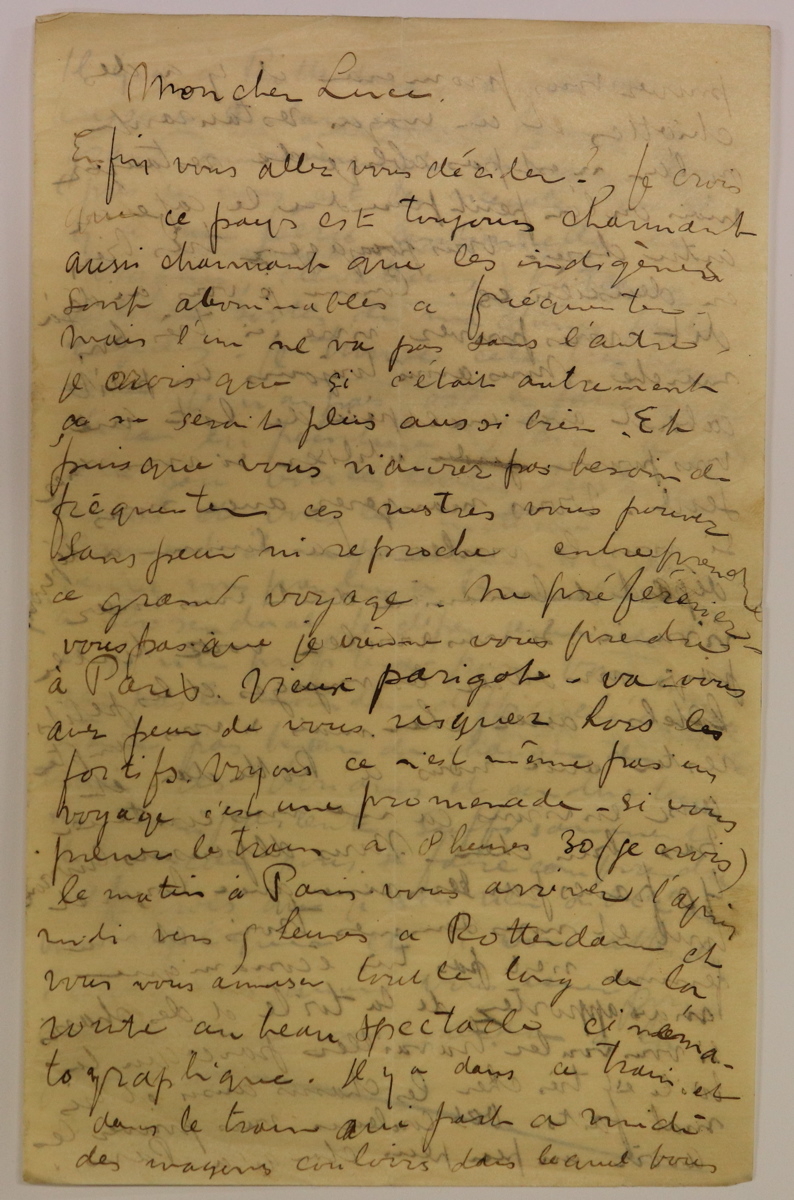 Mon cher Luce.
Enfin vous allez vous décider! Je crois
que ce pays est toujours charmant
aussi charmant que les indigènes
sont abominables a fréquenter.
Mais l'un ne va pas sans l'autre,
je crois que si c'était autrement
ça ne serait plus aussi bien. Et
puisque vous n'aurez pas besoin de
fréquenter ces rustres vous pouvez
sans peur ni reproche entreprendre
ce grand voyage. Ne préfèreriez-
vous pas que je vienne vous prendre
à Paris. Vieux parigot - va - vous
avez peur de vous risquer hors les
fortifs. Voyons ce n'est même pas un
voyage c'est une promenade - si vous
prenez le train a 8 heures 30 (je crois)
le matin à Paris vous arrivez l'après
midi vers 5 heures a Rotterdam et
vous vous amusez tout le long de la
route au beau spectacle cinéma-
tographique. Il y a dans ce train et
dans le train qui part a midi
des wagons couloirs dans lequel vous